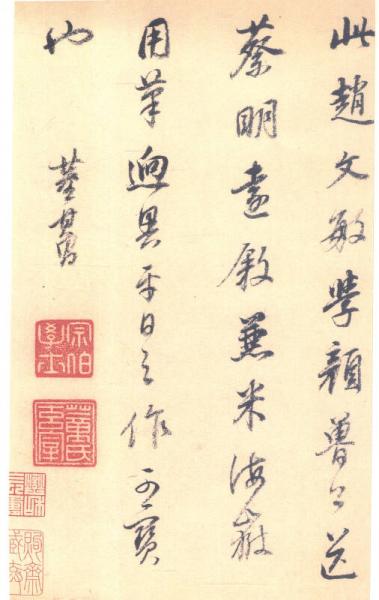 此趙文敏學顏魯公送
蔡明遠敘兼米海嶽
用筆迥異平日之作可寶
也 董其昌
宗伯學士
董氏玄宰